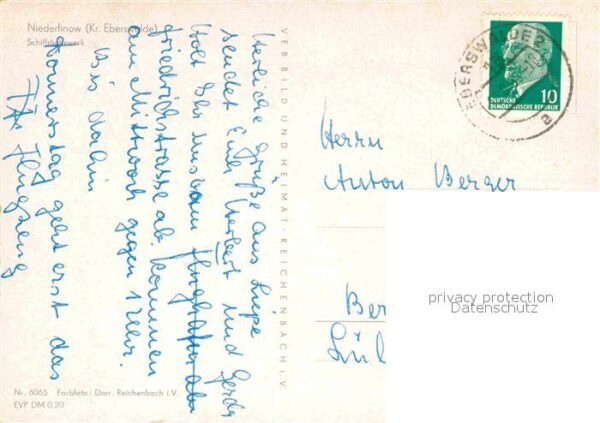 Niederfinow (Kr. Eberswalde)
Schiffshebewerk
Herzliche Grüße aus Liepe
sendet Euch Herbert und Gerda
Holt Ihr uns vom Flughafen oder
Friedrichstrasse ab. Kommen
am Mittwoch gegen 1 Uhr.
Bis dahin
Donnerstag geht erst das
Flugzeug
VEB BILD UND HEIMAT · REICHENBACH i. V.
EBERSWALDE 2
a
DEUTSCHE
DEMOKRATISCHE REPUBLIK
10
Herrn
Anton Berger
Ber
Lüb
privacy protection
Datenschutz
Nr. 6065 Farbfoto: Darr, Reichenbach i. V.
EVP DM 0,20